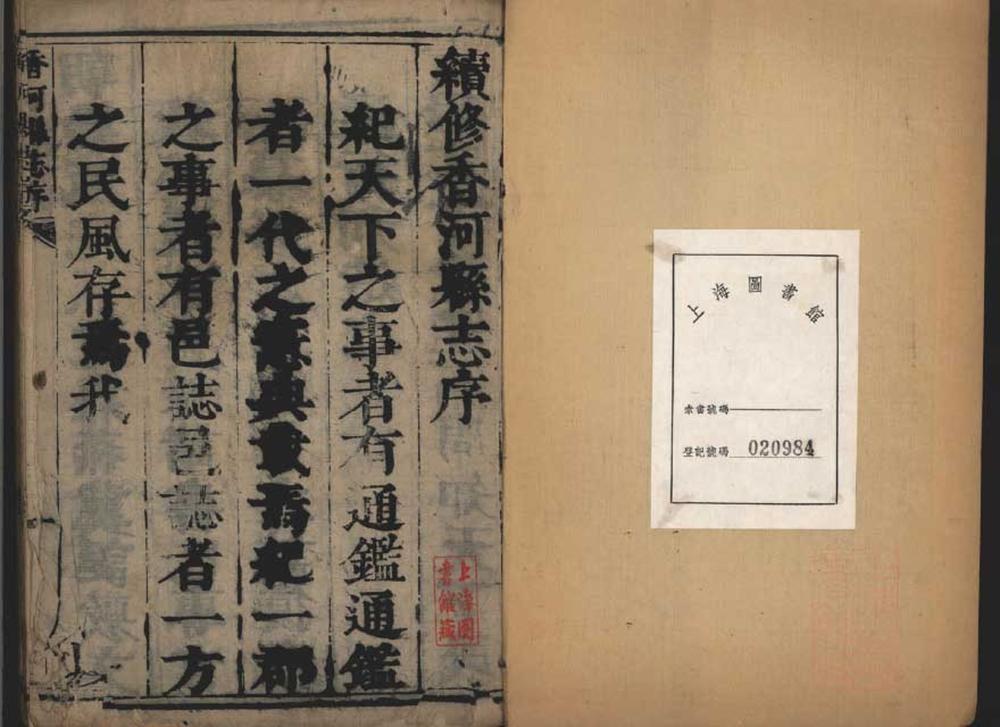 上海圖書館
索書號碼
登記號碼 020984
續修香河縣志序
上海圖
書館藏
紀天下之事者有通鑑通鑑
者一代之憲典載焉紀一郡
之事者有邑誌邑誌者一方
之民風存焉我
香河縣志序